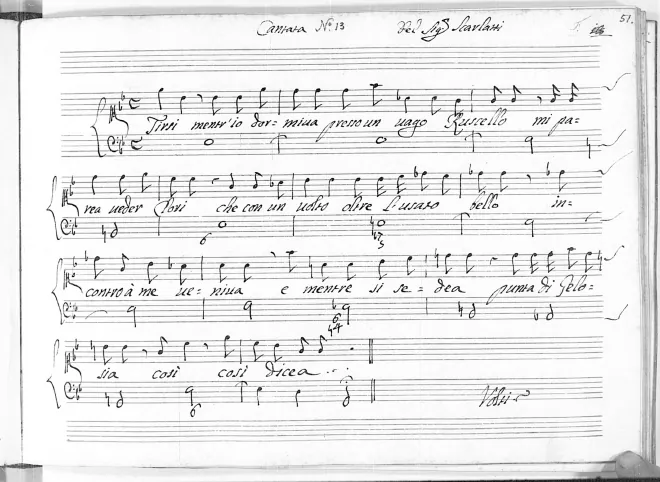 51.
Cantata N.º 13 Del Sig.r Scarlatti
Tirsi mentr'io dor= miua presso un uago Ruscello mi pa=
rea ueder Clori che con un uolto oltre l'usato bello in=
contro à me ue= niua e mentre si se= dea punta di Gelo=
sia così così dicea
Volti